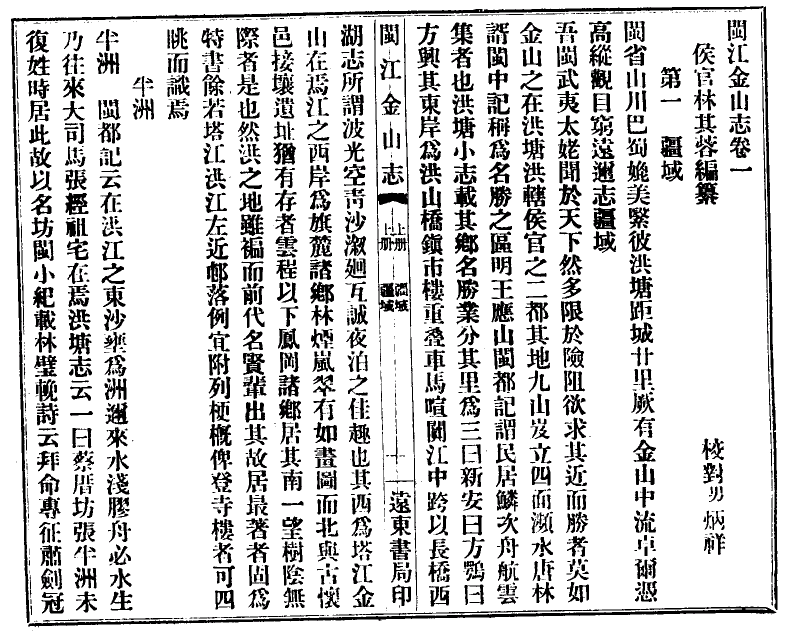 閩江金山志卷一
侯官林其蓉編纂 校對男炳祥
第一 疆域
閩省山川巴蜀媲美緊彼洪塘距城廿里厥有金山中流卓爾憑
高縱觀目窮遠邇志疆域
吾閩武夷太姥聞於天下然多限於險阻欲求其近而勝者莫如
金山之在洪塘洪轄侯官之二都其地九山岌立四面瀕水唐林
諝閩中記稱爲名勝之區明王應山閩都記謂民居鱗次舟航雲
集者也洪塘小志載其鄉名勝業分其里爲三曰新安曰方鶚曰
方興其東岸爲洪山橋鎭市樓重叠車馬喧闐江中跨以長橋西
閩江金山志 上册 疆域 上册 疆域 十 遠東書局印
湖志所謂波光空靑沙溆廻互誠夜泊之佳趣也其西爲塔江金
山在焉江之西岸爲旗麓諸鄉林煙嵐翠有如畫圖而北與古懷
邑接壤遺址猶有存者雲程以下鳳岡諸鄉居其南一望樹陰無
際者是也然洪之地雖褊而前代名賢輩出其故居最著者固爲
特書餘若塔江洪江左近邨落例宜附列梗概俾登寺樓者可四
眺而識焉
半洲
半洲 閩都記云在洪江之東沙壅爲洲邇來水淺膠舟必水生
乃往來大司馬張經祖宅在焉洪塘志云一曰蔡厝坊張半洲未
復姓時居此故以名坊閩小紀載林璧輓詩云拜命專征肅劍冠